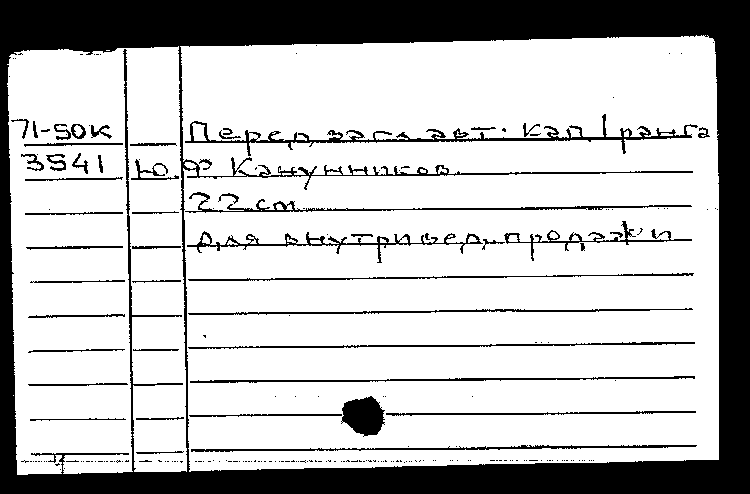 71-50К Перед загл. авт. кап 1 ранга
3541 Ю.Ф. Канунников.
22 cm
для внутривед. продажи